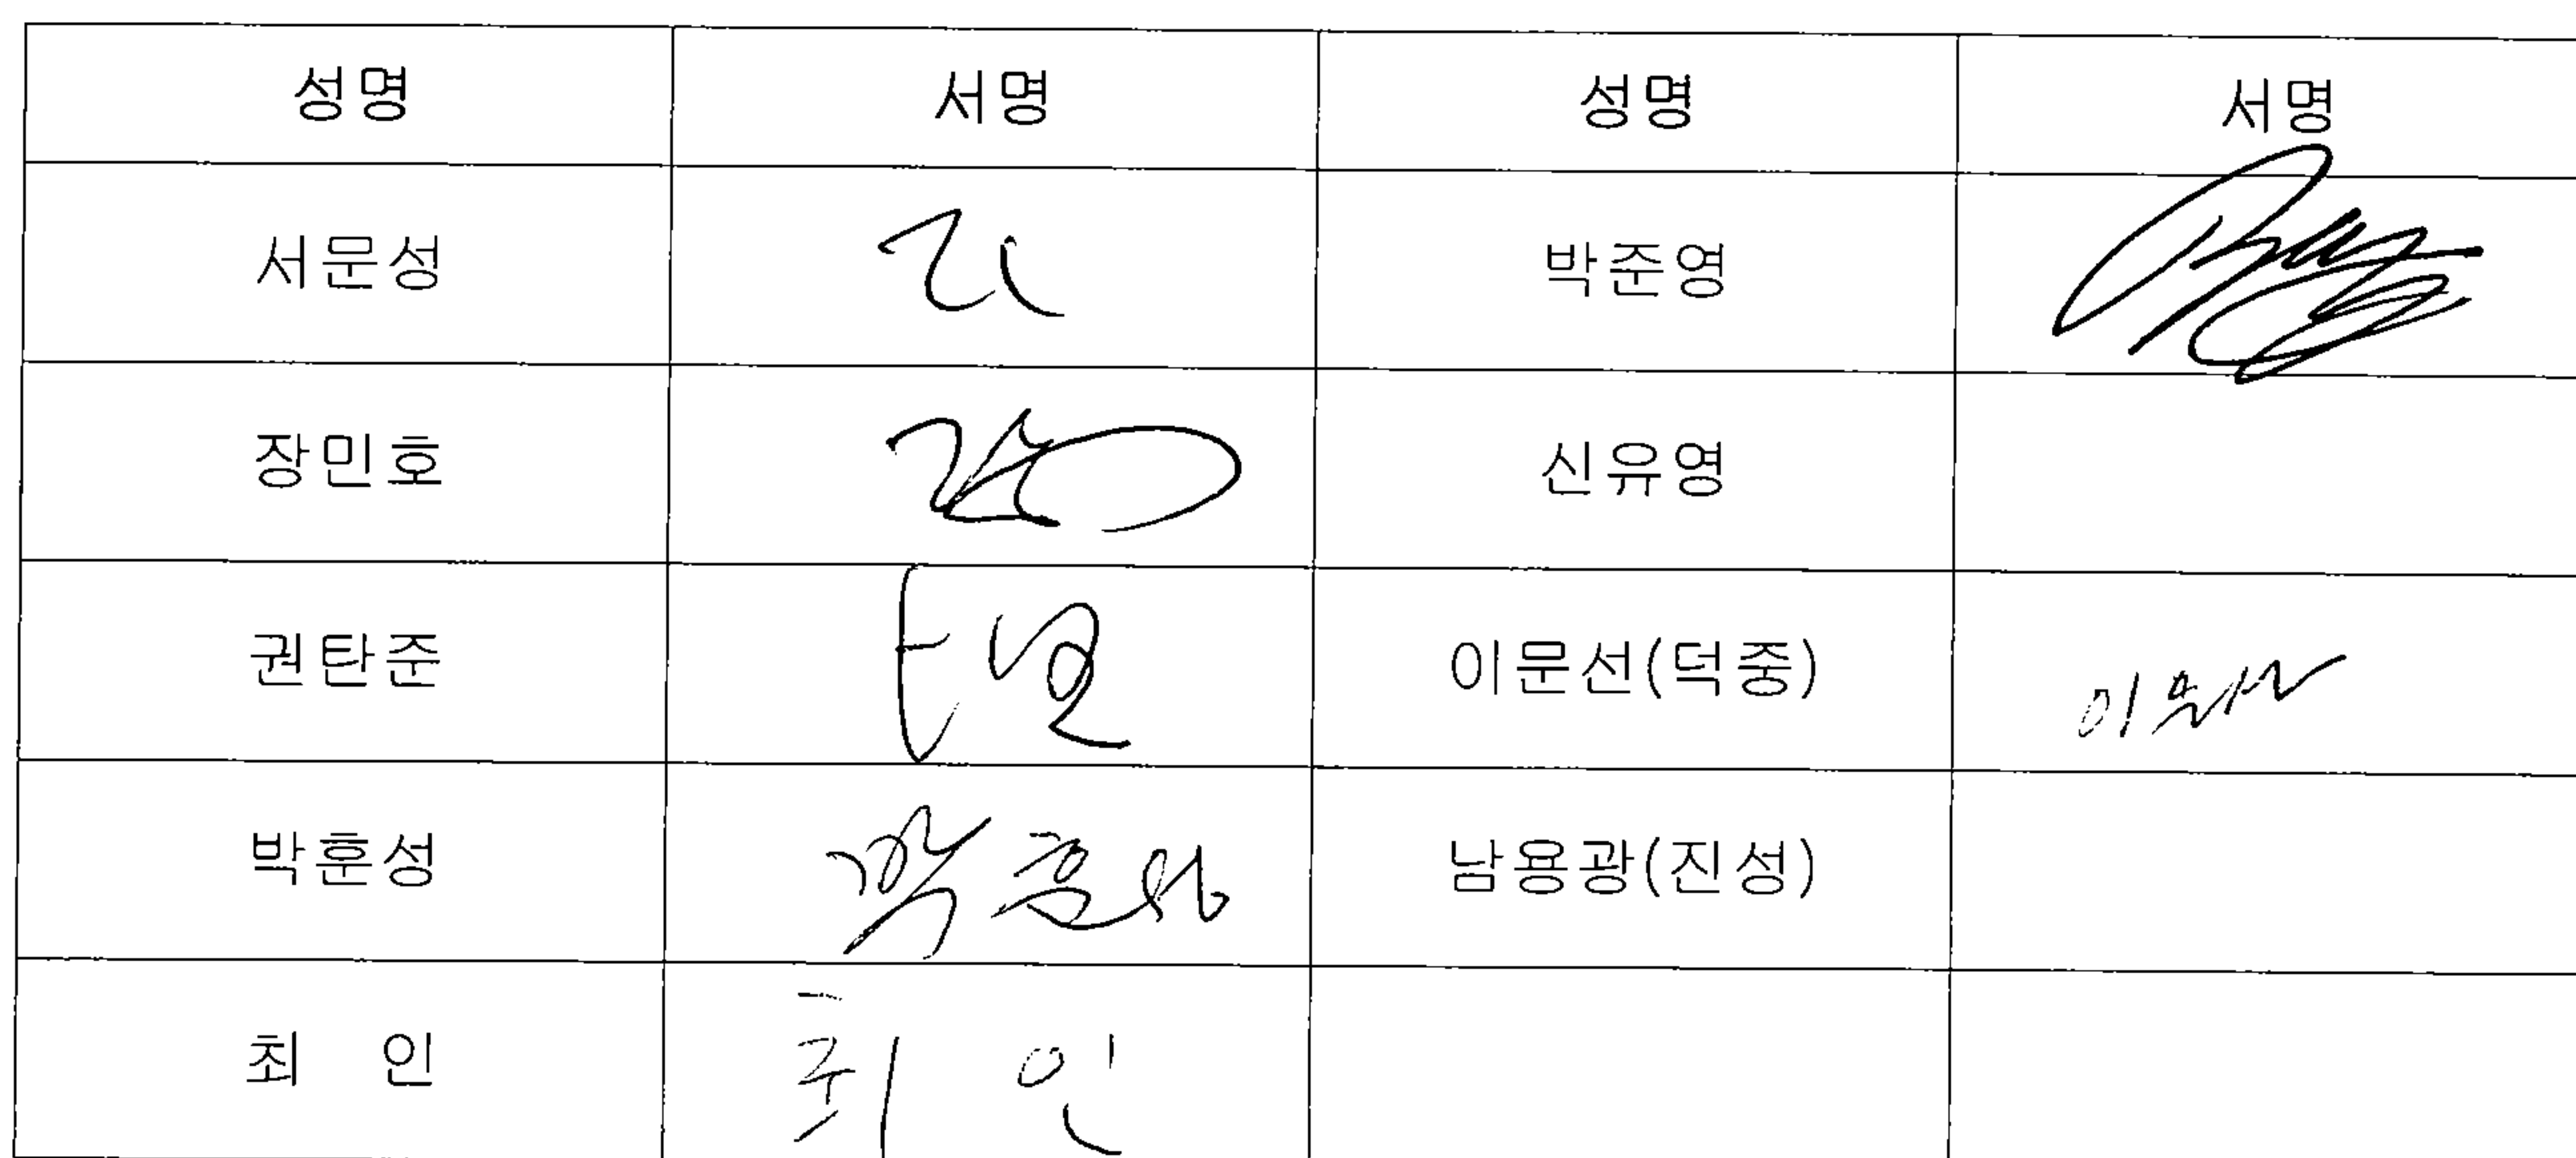 성명 서명 성명 서명
서문성 박준영
장민호 신유영
권탄준 이문선(덕중)
박훈성 박훈성 남용광(진성)
최 인 최 인